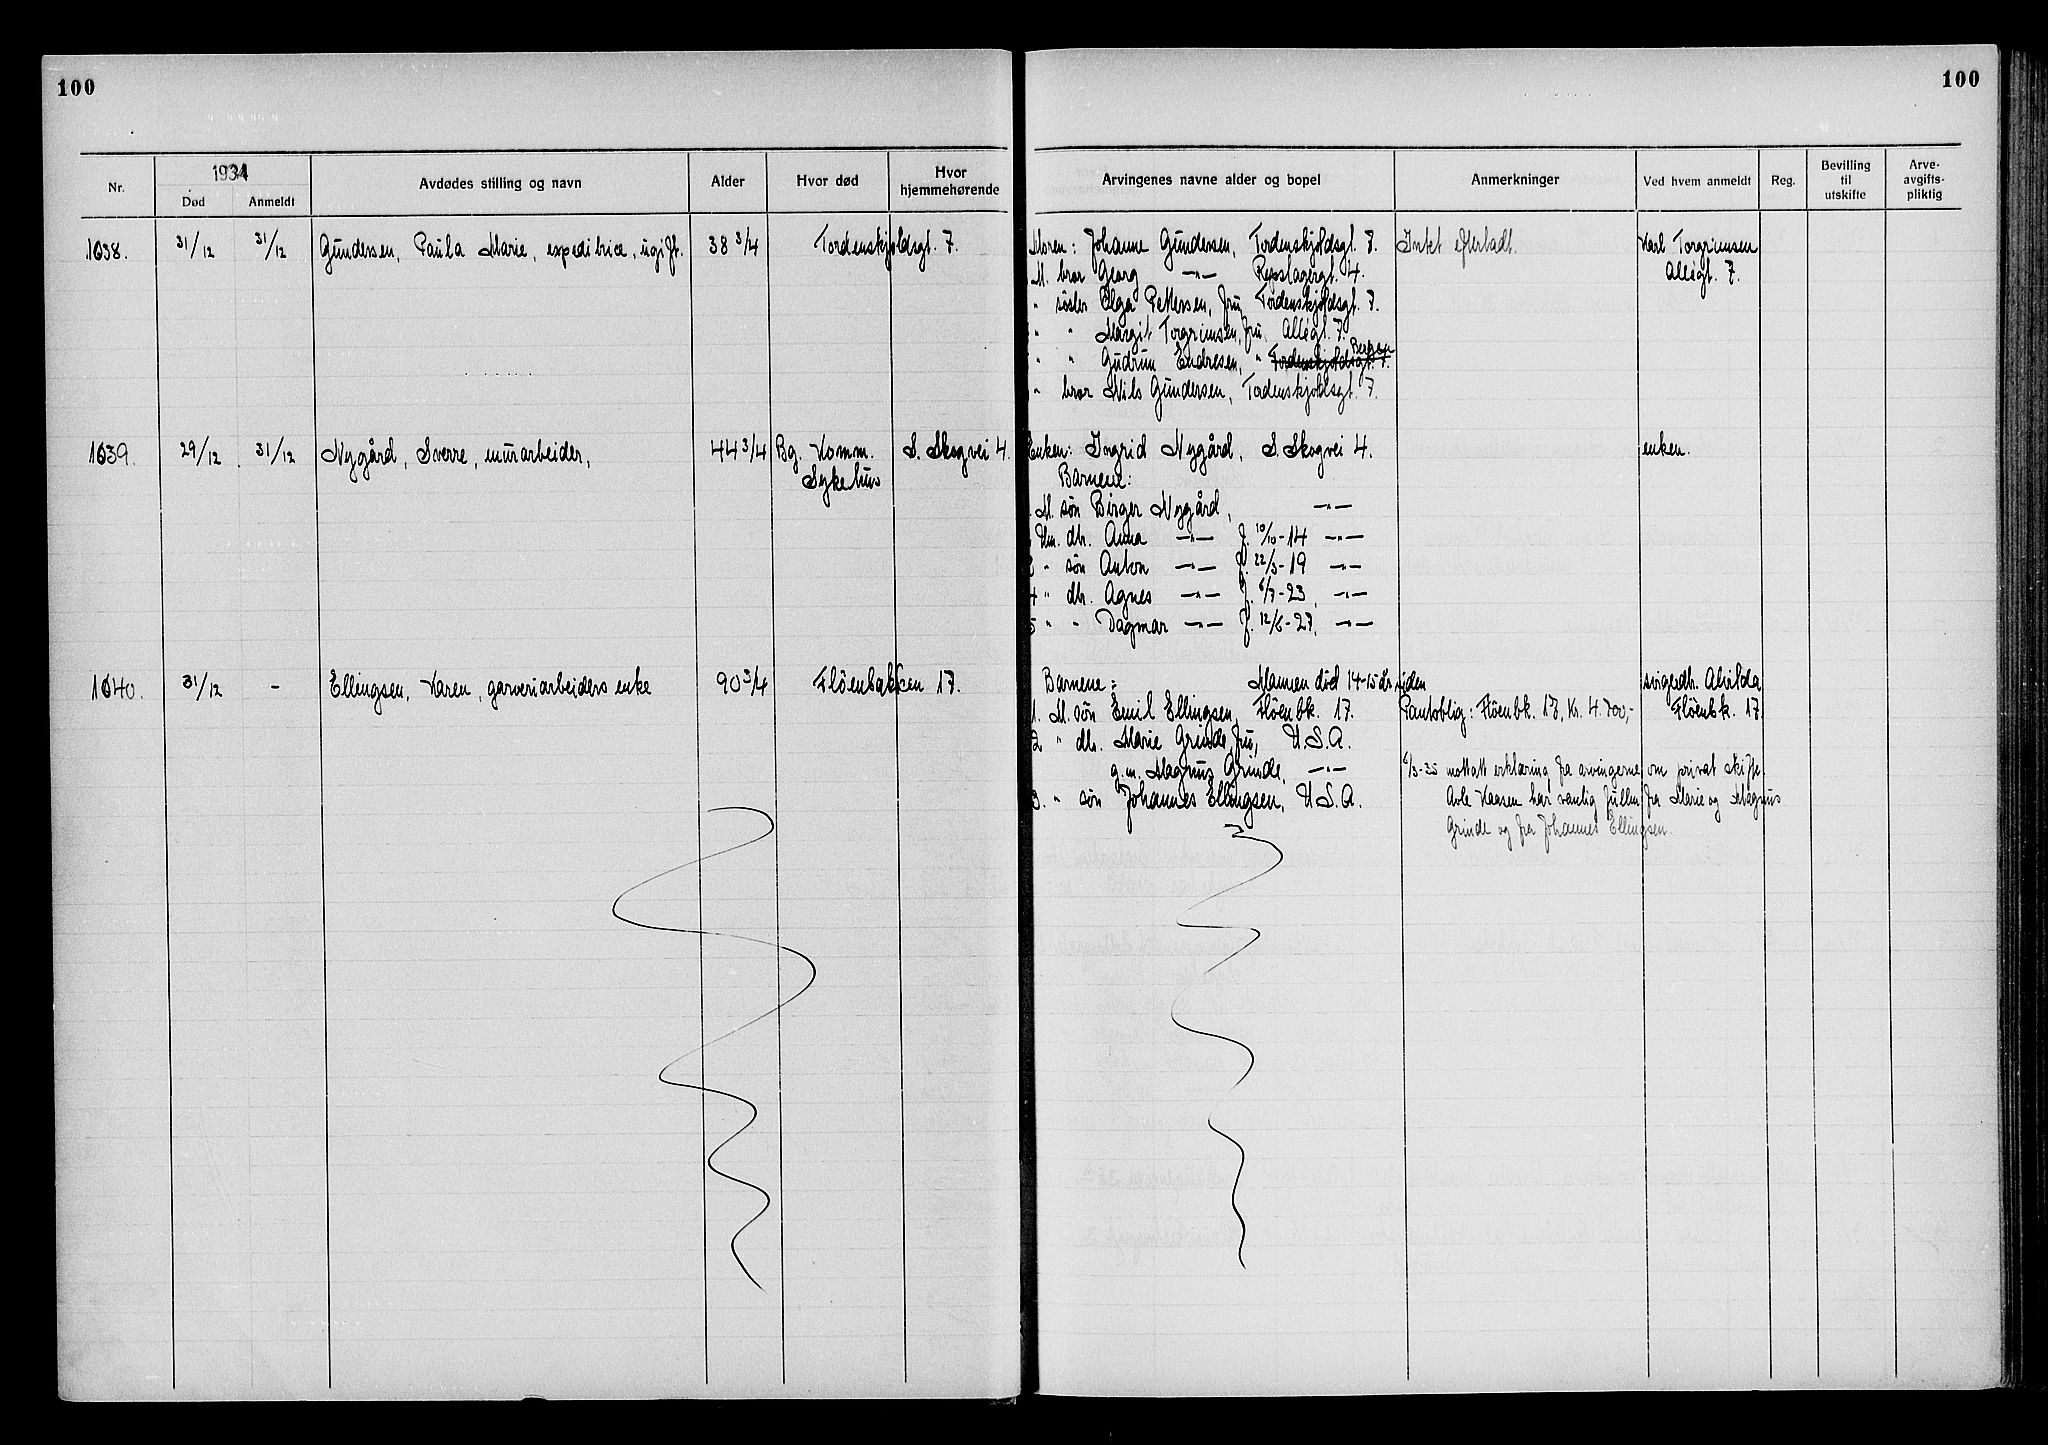 100
100
Nr.
1934
Død
Anmeldt
Avdødes stilling og navn
Alder
Hvor død
Hvor hjemmehørende
Arvingenes navne alder og bopel
Anmerkninger
Ved hvem anmeldt
Reg.
Bevilling til utskifte
Arve-avgifts-pliktig
1638. 31/12 31/12 Gundersen, Paula Marie, expeditrice, ugift. 38 3/4 Tordenskjoldsgt. 7. Moren: Johanne Gundersen, Tordenskjoldsgt. 7. Intet efterladt. Karl Torgrimsen
M. bror Georg —"— Repslagergt. 4. Allégt. 7.
" søster Olga Pettersen, fru Tordenskjoldsgt. 7.
" " Margit Torgrimsen, fru, Allégt. 7.
" " Gudrun Endresen, " Tordenskjoldsgt. 7. Bergen
" bror Nils Gundersen, Tordenskjoldsgt. 7.
1639. 29/12 31/12 Nygård, Sverre, murarbeider, 44 3/4 Bg. Komm. S. Skogvei 4. Enken: Ingrid Nygård, S. Skogvei 4. enken.
Sykehus Barnene:
M. søn Birger Nygård, —"—
Um. dtr. Anna —"— f. 10/10-14 —"—
3 " søn Anton —"— f. 22/3-19 —"—
4 " dtr. Agnes —"— f. 6/7-23, —"—
5 " " Dagmar —"— f. 12/6-27, —"—
1640. 31/12 - Ellingsen, Karen, garveriarbeiders enke 90 3/4 Fløenbakken 17. Barnene: Mannen død 14-15 år siden svigerdtr. Alvilda
1. M. søn Emil Ellingsen, Fløenbk. 17. Pantoblig: Fløenbk. 17, Kr. 4.700,- Fløenbk. 17.
2 " dtr. Marie Grinde, fru, U.S.A.
g.m. Magnus Grinde, —"— 6/3-35 mottatt erklæring fra arvingerne om privat skifte.
3. " søn Johannes Ellingsen, U.S.A. Kaasen har vanlig fullm. fra Marie og Magnus
Grinde og fra Johannes Ellingsen.